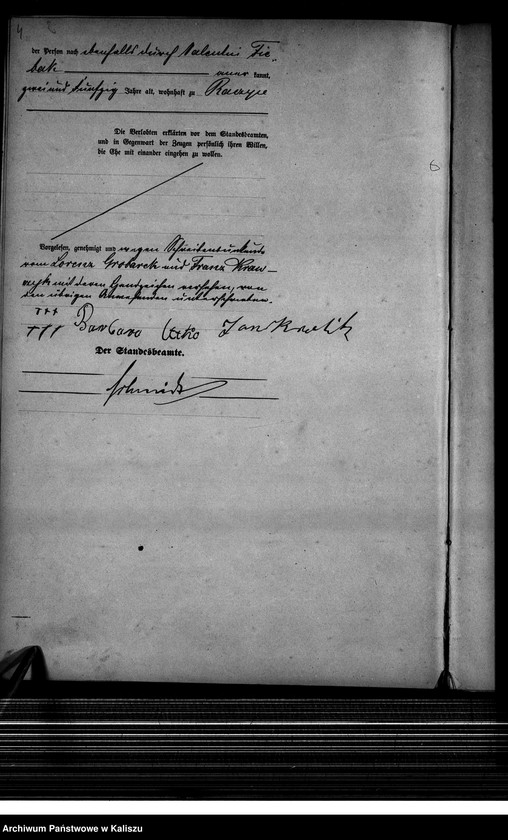 4
der Person nach ebenfalls durch Valentin Fic-
bak aner kannt,
zwei und fünfzig Jahre alt, wohnhaft zu
Die Verlobten erklärten vor dem Standesbeamten,
und in Gegenwart der Zeugen persönlich ihren Willen,
die Ehe mit einander eingehen zu wollen.
6
Vorgelesen, genehmigt und wegen Schreibensunkunde
vom Lorenz und Franz
mit deren Handzeichen versehen, von
den übrigen unterschrieben.
+++
+++ Barbara Jan
Der Standesbeamte.
Schmidt
Archiwum Państwowe w Kaliszu